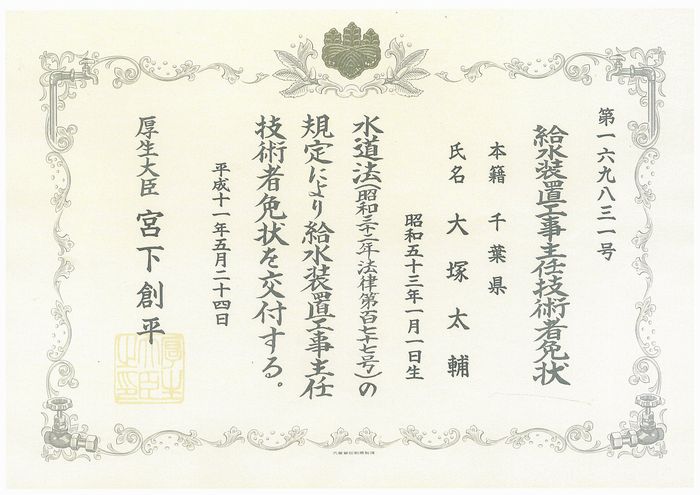 第一六九八三一号
給水装置工事主任技術者免状
本籍 千葉県
氏名 大塚太輔
昭和五十三年一月一日生
水道法(昭和三十二年法律第百七十七号)の
規定により給水装置工事主任
技術者免状を交付する。
平成十一年五月二十四日
厚生大臣 宮下創平
厚生大臣之印